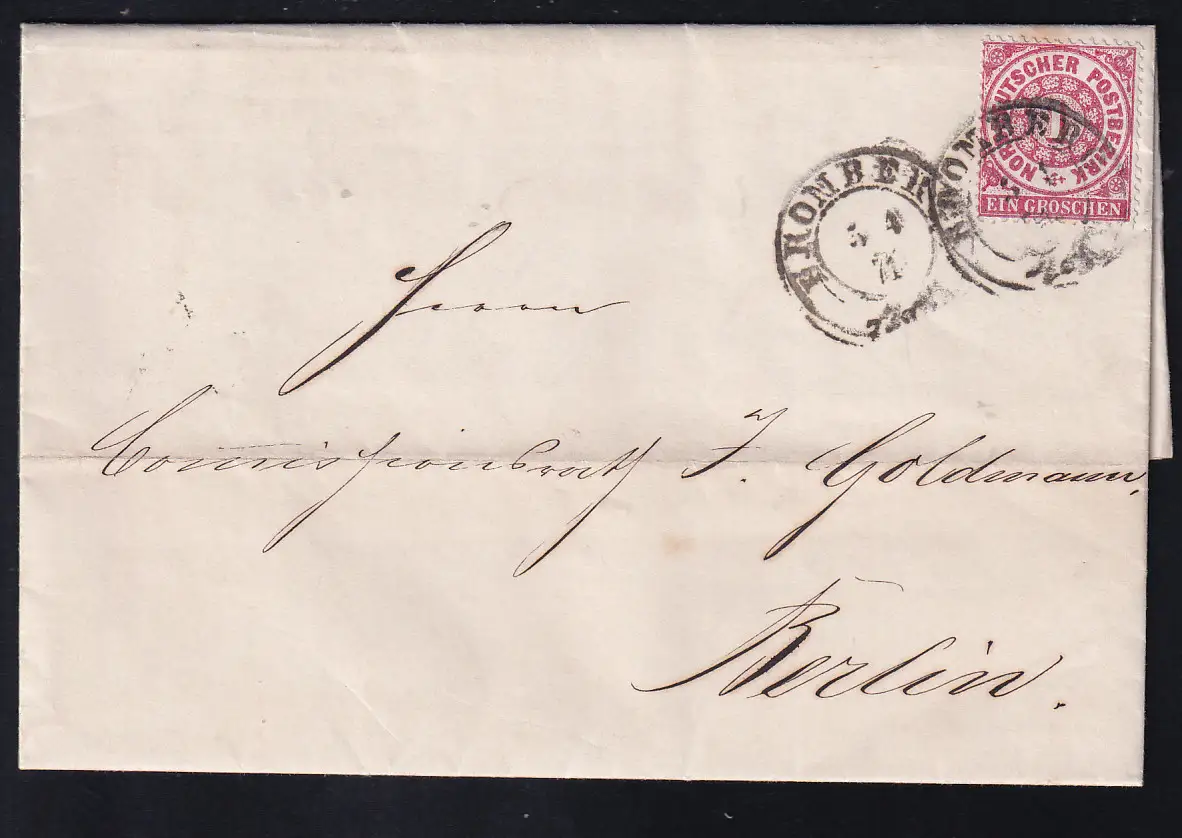 NORDDEUTSCHER POSTBEZIRK
1
EIN GROSCHEN
BROMBERG
5 4
71
BROMBERG
Herrn
Commissionsrath J. Goldmann,
Berlin.